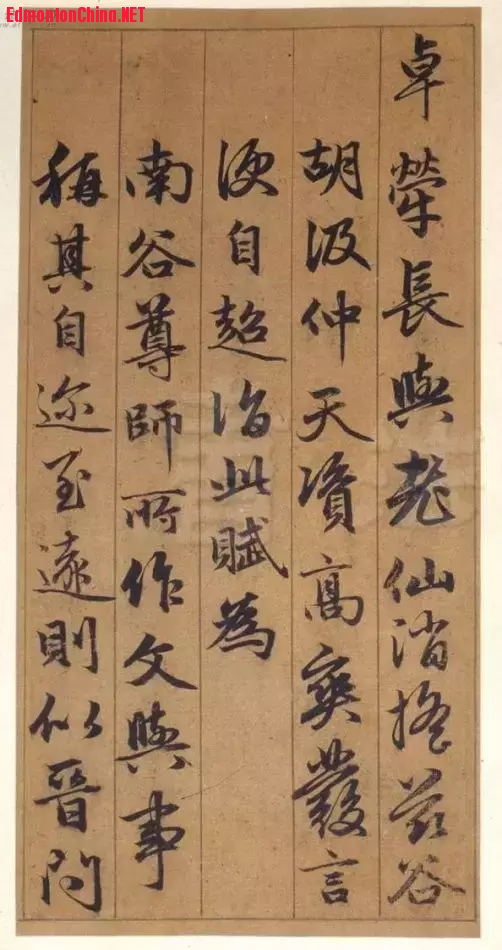 EdmontonChina.NET
卓犖長與老仙消搖茲谷
胡汲仲天資高爽叢言
便自超詣此賦為
南谷尊師所作文與事
稱其自迩至遠則似晉問